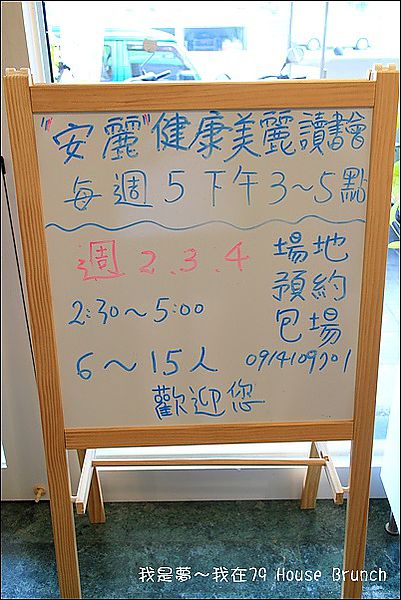 "安麗"健康美麗讀書會
每週5下午3~5點
週2.3.4
2:30~5:00
6~15人
場地
預約
包場
0914109701
歡迎您
我是夢~我在79 House Brunch